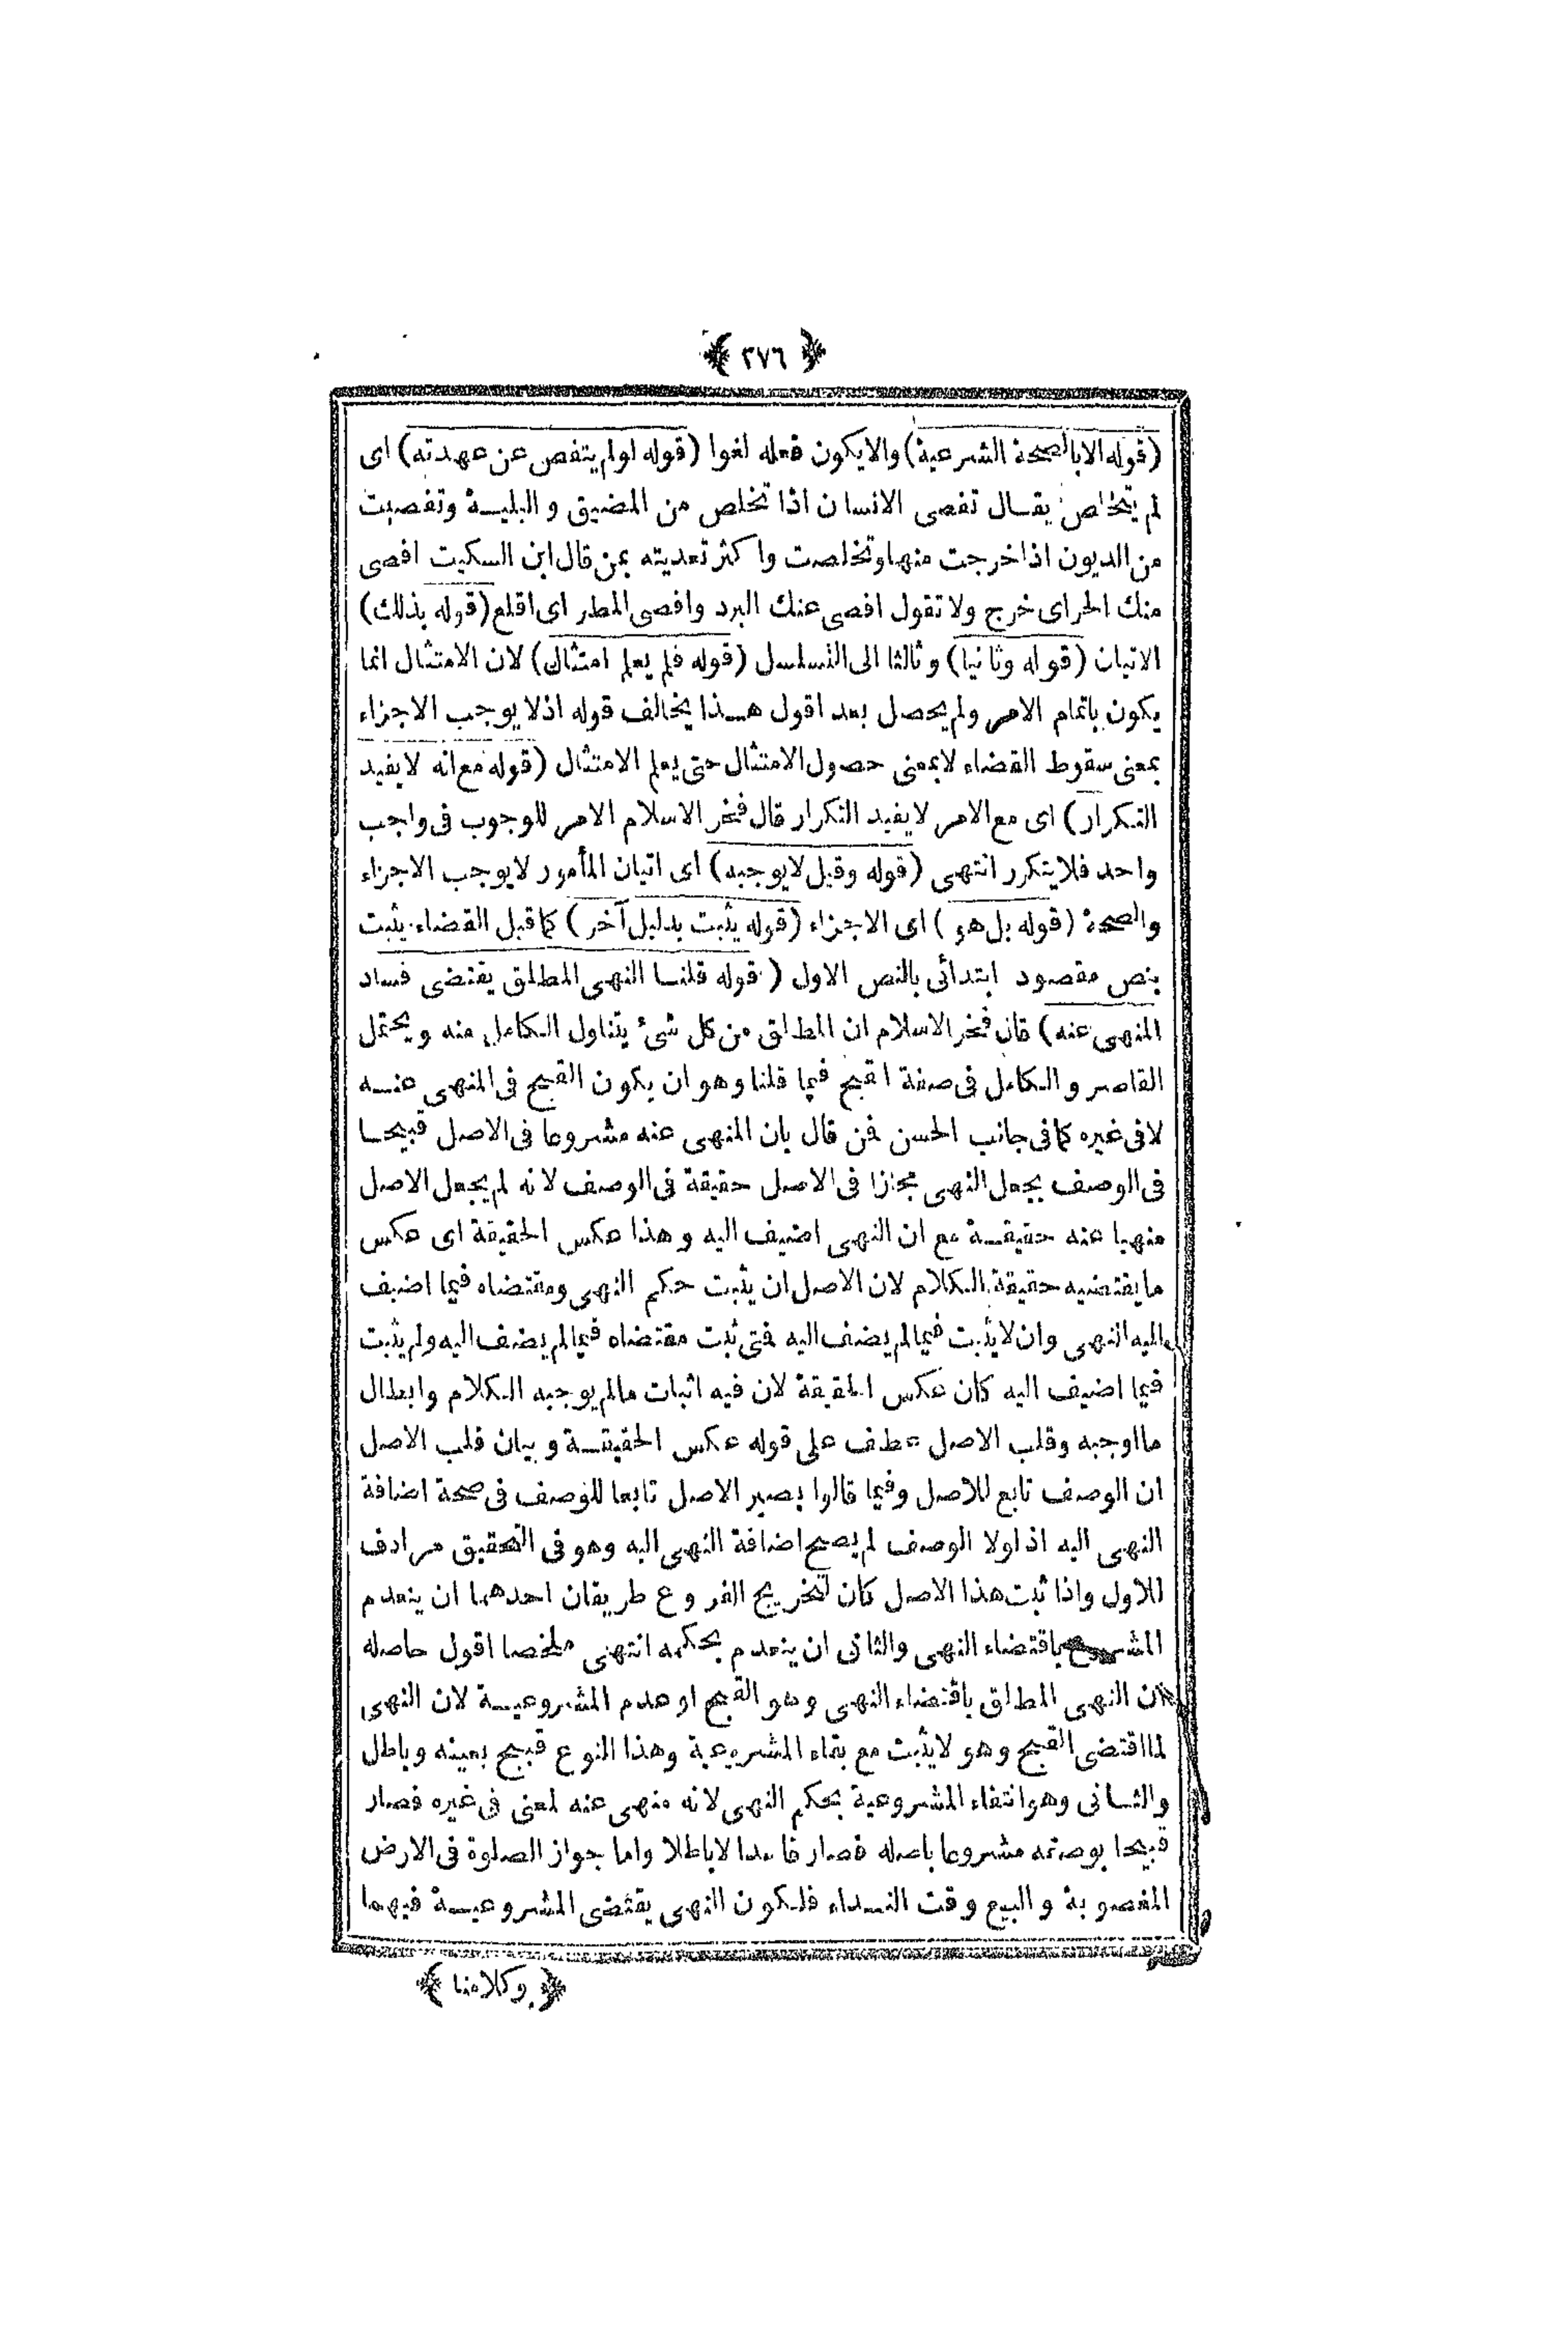 ﴿ ٢٧٦ ﴾
(قوله الا بالصحة الشرعية) والا يكون فعله لغوا (قوله لو لم يتفص عن عهدته) اى
لم يتخلص يقال تفصى الانسان اذا تخلص من المضيق والبلية وتفصيت
من الديون اذا خرجت منها وتخلصت واكثر تعديته بمن قال ابن السكيت افصى
منك الحر اى خرج ولا تقول افصى عنك البرد وافصى المطر اى اقلع (قوله بذلك)
الاتيان (قوله وثانيا) وثالثا الى التسلسل (قوله فلم يعلم امتثال) لان الامتثال انما
يكون باتمام الامر ولم يحصل بعد اقول هذا يخالف قوله اذ لا يوجب الاجزاء
بمعنى سقوط القضاء لا بمعنى حصول الامتثال حتى يعلم الامتثال (قوله مع انه لا يفيد
التكرار) اى مع الامر لا يفيد التكرار قال فخر الاسلام الامر للوجوب فى واجب
واحد فلا يتكرر انتهى (قوله وقيل لا يوجبه) اى اتيان المأمور لا يوجب الاجزاء
والصحة (قوله بل هو) اى الاجزاء (قوله يثبت بدليل آخر) كما قبل القضاء يثبت
بنص مقصود ابتدائى بالنص الاول (قوله قلنا النهى المطلق يقتضى فساد
المنهى عنه) قال فخر الاسلام ان المطلق من كل شئ يتناول الكامل منه ويحتمل
القاصر والكامل فى صفة القبح فيما قلنا وهو ان يكون القبح فى المنهى عنه
لا فى غيره كما فى جانب الحسن فمن قال بان المنهى عنه مشروعا فى الاصل قبيحا
فى الوصف يجعل النهى مجازا فى الاصل حقيقة فى الوصف لانه لم يجعل الاصل
منهيا عنه حقيقة مع ان النهى اضيف اليه وهذا عكس الحقيقة اى عكس
ما يقتضيه حقيقة الكلام لان الاصل ان يثبت حكم النهى ومقتضاه فيما اضيف
اليه النهى وان لا يثبت فيما لم يضف اليه فمتى ثبت مقتضاه فيما لم يضف اليه ولم يثبت
فيما اضيف اليه كان عكس الحقيقة لان فيه اثبات مالم يوجبه الكلام وابطال
ما اوجبه وقلب الاصل عطف على قوله عكس الحقيقة وبيان قلب الاصل
ان الوصف تابع للاصل وفيما قالوا يصير الاصل تابعا للوصف فى صحة اضافة
النهى اليه اذ لولا الوصف لم يصح اضافة النهى اليه وهو فى التحقيق مرادف
للاول واذا ثبت هذا الاصل كان لتخريج الفروع طريقان احدهما ان ينعدم
المشروع باقتضاء النهى والثانى ان ينعدم بحكمه انتهى ملخصا اقول حاصله
ان النهى المطلق باقتضاء النهى وهو القبح او عدم المشروعية لان النهى
لما اقتضى القبح وهو لا يثبت مع بقاء المشروعية وهذا النوع قبيح بعينه وباطل
والثانى وهو انتفاء المشروعية بحكم النهى لانه منهى عنه لمعنى فى غيره فصار
قبيحا بوصفه مشروعا باصله فصار فاسدا لا باطلا واما جواز الصلوة فى الارض
المغصوبة والبيع وقت النداء فلكون النهى يقتضى المشروعية فيهما
﴿ وكلامنا ﴾